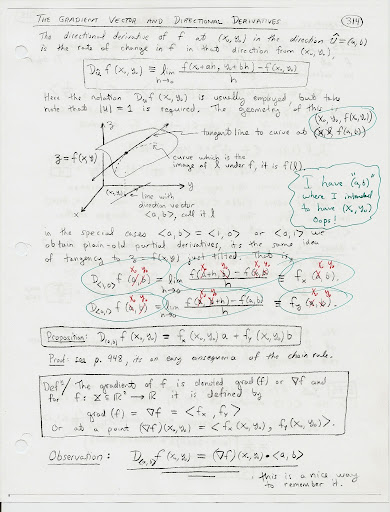 THE GRADIENT VECTOR AND DIRECTIONAL DERIVATIVES (314)
The directional derivative of f at (x₀, y₀) in the direction û = ⟨a, b⟩
is the rate of change in f in that direction from (x₀, y₀),
D_û f(x₀, y₀) ≡ lim h→0 f(x₀+ah, y₀+bh) - f(x₀, y₀) / h
Here the notation D_u f(x₀, y₀) is usually employed, but take
note that |u| = 1 is required. The geometry of this
(x₀, y₀, f(x₀, y₀))
tangent line to curve at (a, b, f(a, b))
z
z = f(x, y)
curve which is the
image of l under f, it is f(l).
(x₀, y₀)
y
x
line with
direction vector
<a, b>, call it l
I have "(a, b)"
where I intended
to have (x₀, y₀)
Oops!
in the special cases <a, b> = <1, 0> or <0, 1> we
obtain plain-old partial derivatives, its the same idea
of tangency to z = f(x, y) just tilted. That is,
x₀ y₀ x₀ y₀ x₀ y₀ x₀ y₀
D<1,0> f(a, b) = lim h→0 f(a+h, b) - f(a, b) / h ≡ f_x (a, b).
x₀ y₀ x₀ y₀ x₀ y₀
D<0,1> f(a, b) = lim h→0 f(a, b+h) - f(a, b) / h ≡ f_y (a, b).
Proposition: D_û f(x₀, y₀) = f_x (x₀, y₀) a + f_y (x₀, y₀) b
Proof: see p. 948, its an easy consequence of the chain rule.
Defⁿ/ The gradient of f is denoted grad(f) or ∇f and
for f: ⊆ ℝ² → ℝ it is defined by
grad(f) = ∇f = <f_x, f_y>
Or at a point (∇f)(x₀, y₀) = <f_x(x₀, y₀), f_y(x₀, y₀)>.
Observation: D<a,b> f(x₀, y₀) = (∇f)(x₀, y₀) • <a, b>
this is a nice way
to remember it.